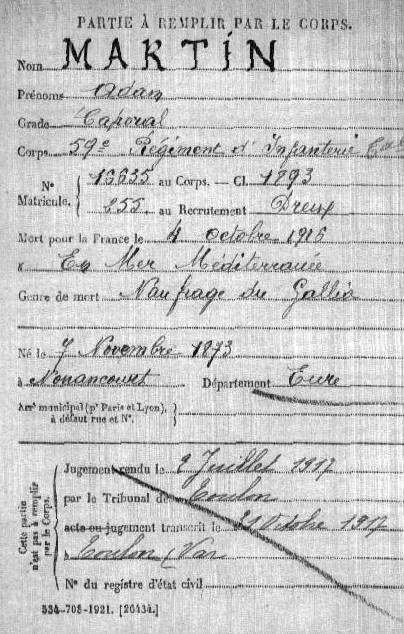 PARTIE À REMPLIR PAR LE CORPS.
Nom MARTIN
Prénoms Adam
Grade Caporal
Corps 59e Régiment d'Infanterie Cale
N° Matricule. { 13635 au Corps. — Cl. 1893
255 au Recrutement Dreux
Mort pour la France le 4 octobre 1916
à En Mer Méditerranée
Genre de mort Naufrage du Gallia
Né le 7 Novembre 1873
à Nonancourt Département Eure
Arrt municipal (pr Paris et Lyon), à défaut rue et N°. }
Cette partie n'est pas à remplir par le Corps. {
Jugement rendu le 2 Juillet 1917
par le Tribunal de Toulon
acte ou jugement transcrit le 21 Octobre 1917
à Toulon (Var
N° du registre d'état civil
534-708-1921. [26434.]